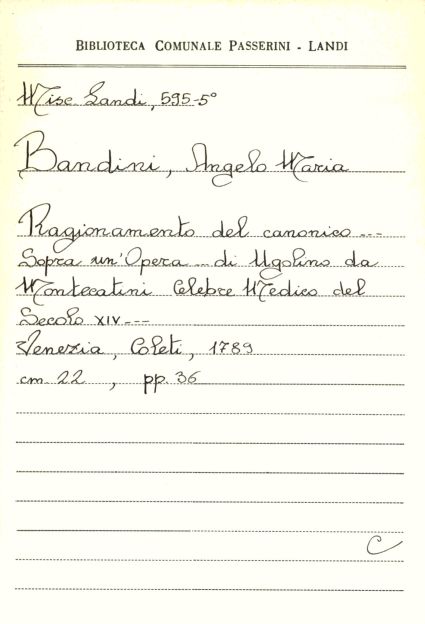 BIBLIOTECA COMUNALE PASSERINI - LANDI
Misc. Landi, 595-5°
Bandini, Angelo Maria
Ragionamento del canonico ---
Sopra un'Opera ... di Ugolino da
Montecatini Celebre Medico del
Secolo XIV ---
Venezia, Coleti, 1789
cm. 22 , pp. 36
C